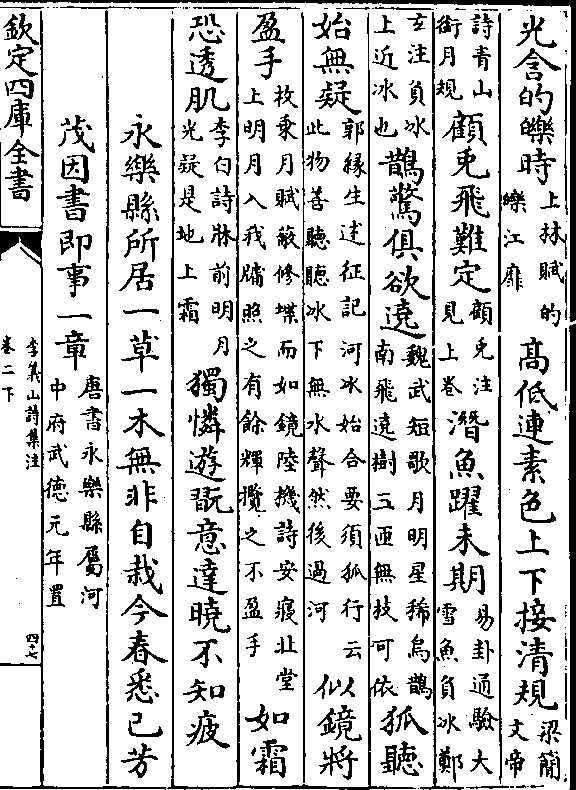 光含的皪時上林賦的皪江靡高低連素色上下接清規梁簡文帝
詩青山銜月規顧兎飛難定顧兎注見上卷潛魚躍未期易卦通驗大雪魚負冰鄭
玄注負冰上近冰也鵲驚俱欲遶魏武短歌月明星稀烏鵲南飛遶樹三匝無技可依狐聽
始無疑郭縁生述征記河冰始合要須狐行云此物善聽聽冰下無水聲然後過河似鏡將
盈手枚乗月賦蔽修堞而如鏡陸機詩安寢北堂上明月入我牖照之有餘輝攬之不盈手如霜
恐透肌李白詩牀前明月光疑是地上霜獨憐遊翫意達曉不知疲
永樂縣所居一草一木無非自栽今春悉已芳
茂因書即事一章唐書永樂縣屬河中府武德元年置
欽定四庫全書
李義山詩集注
卷二下
四十七